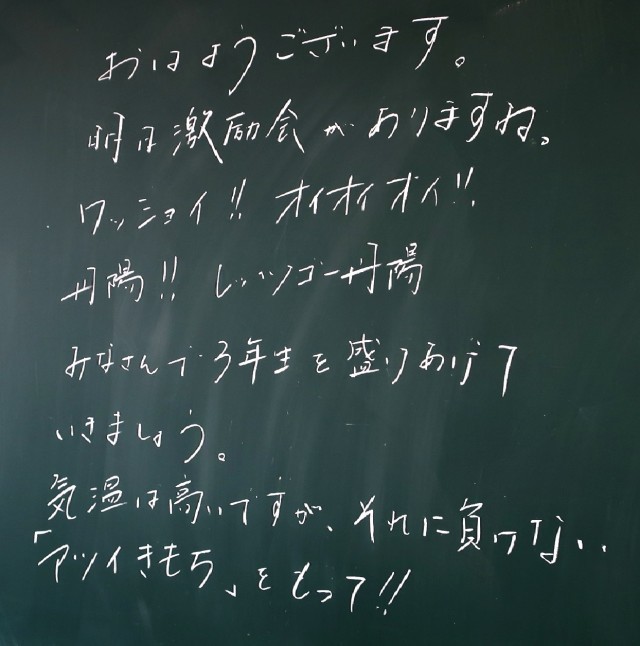 おはようございます。
明日激励会がありますね。
ワッショイ!! オイオイオイ!!
丹陽!! レッツゴー丹陽
みなさんで3年生を盛りあげて
いきましょう。
気温は高いですが、それに負けない
「アツイきもち」をもって!!